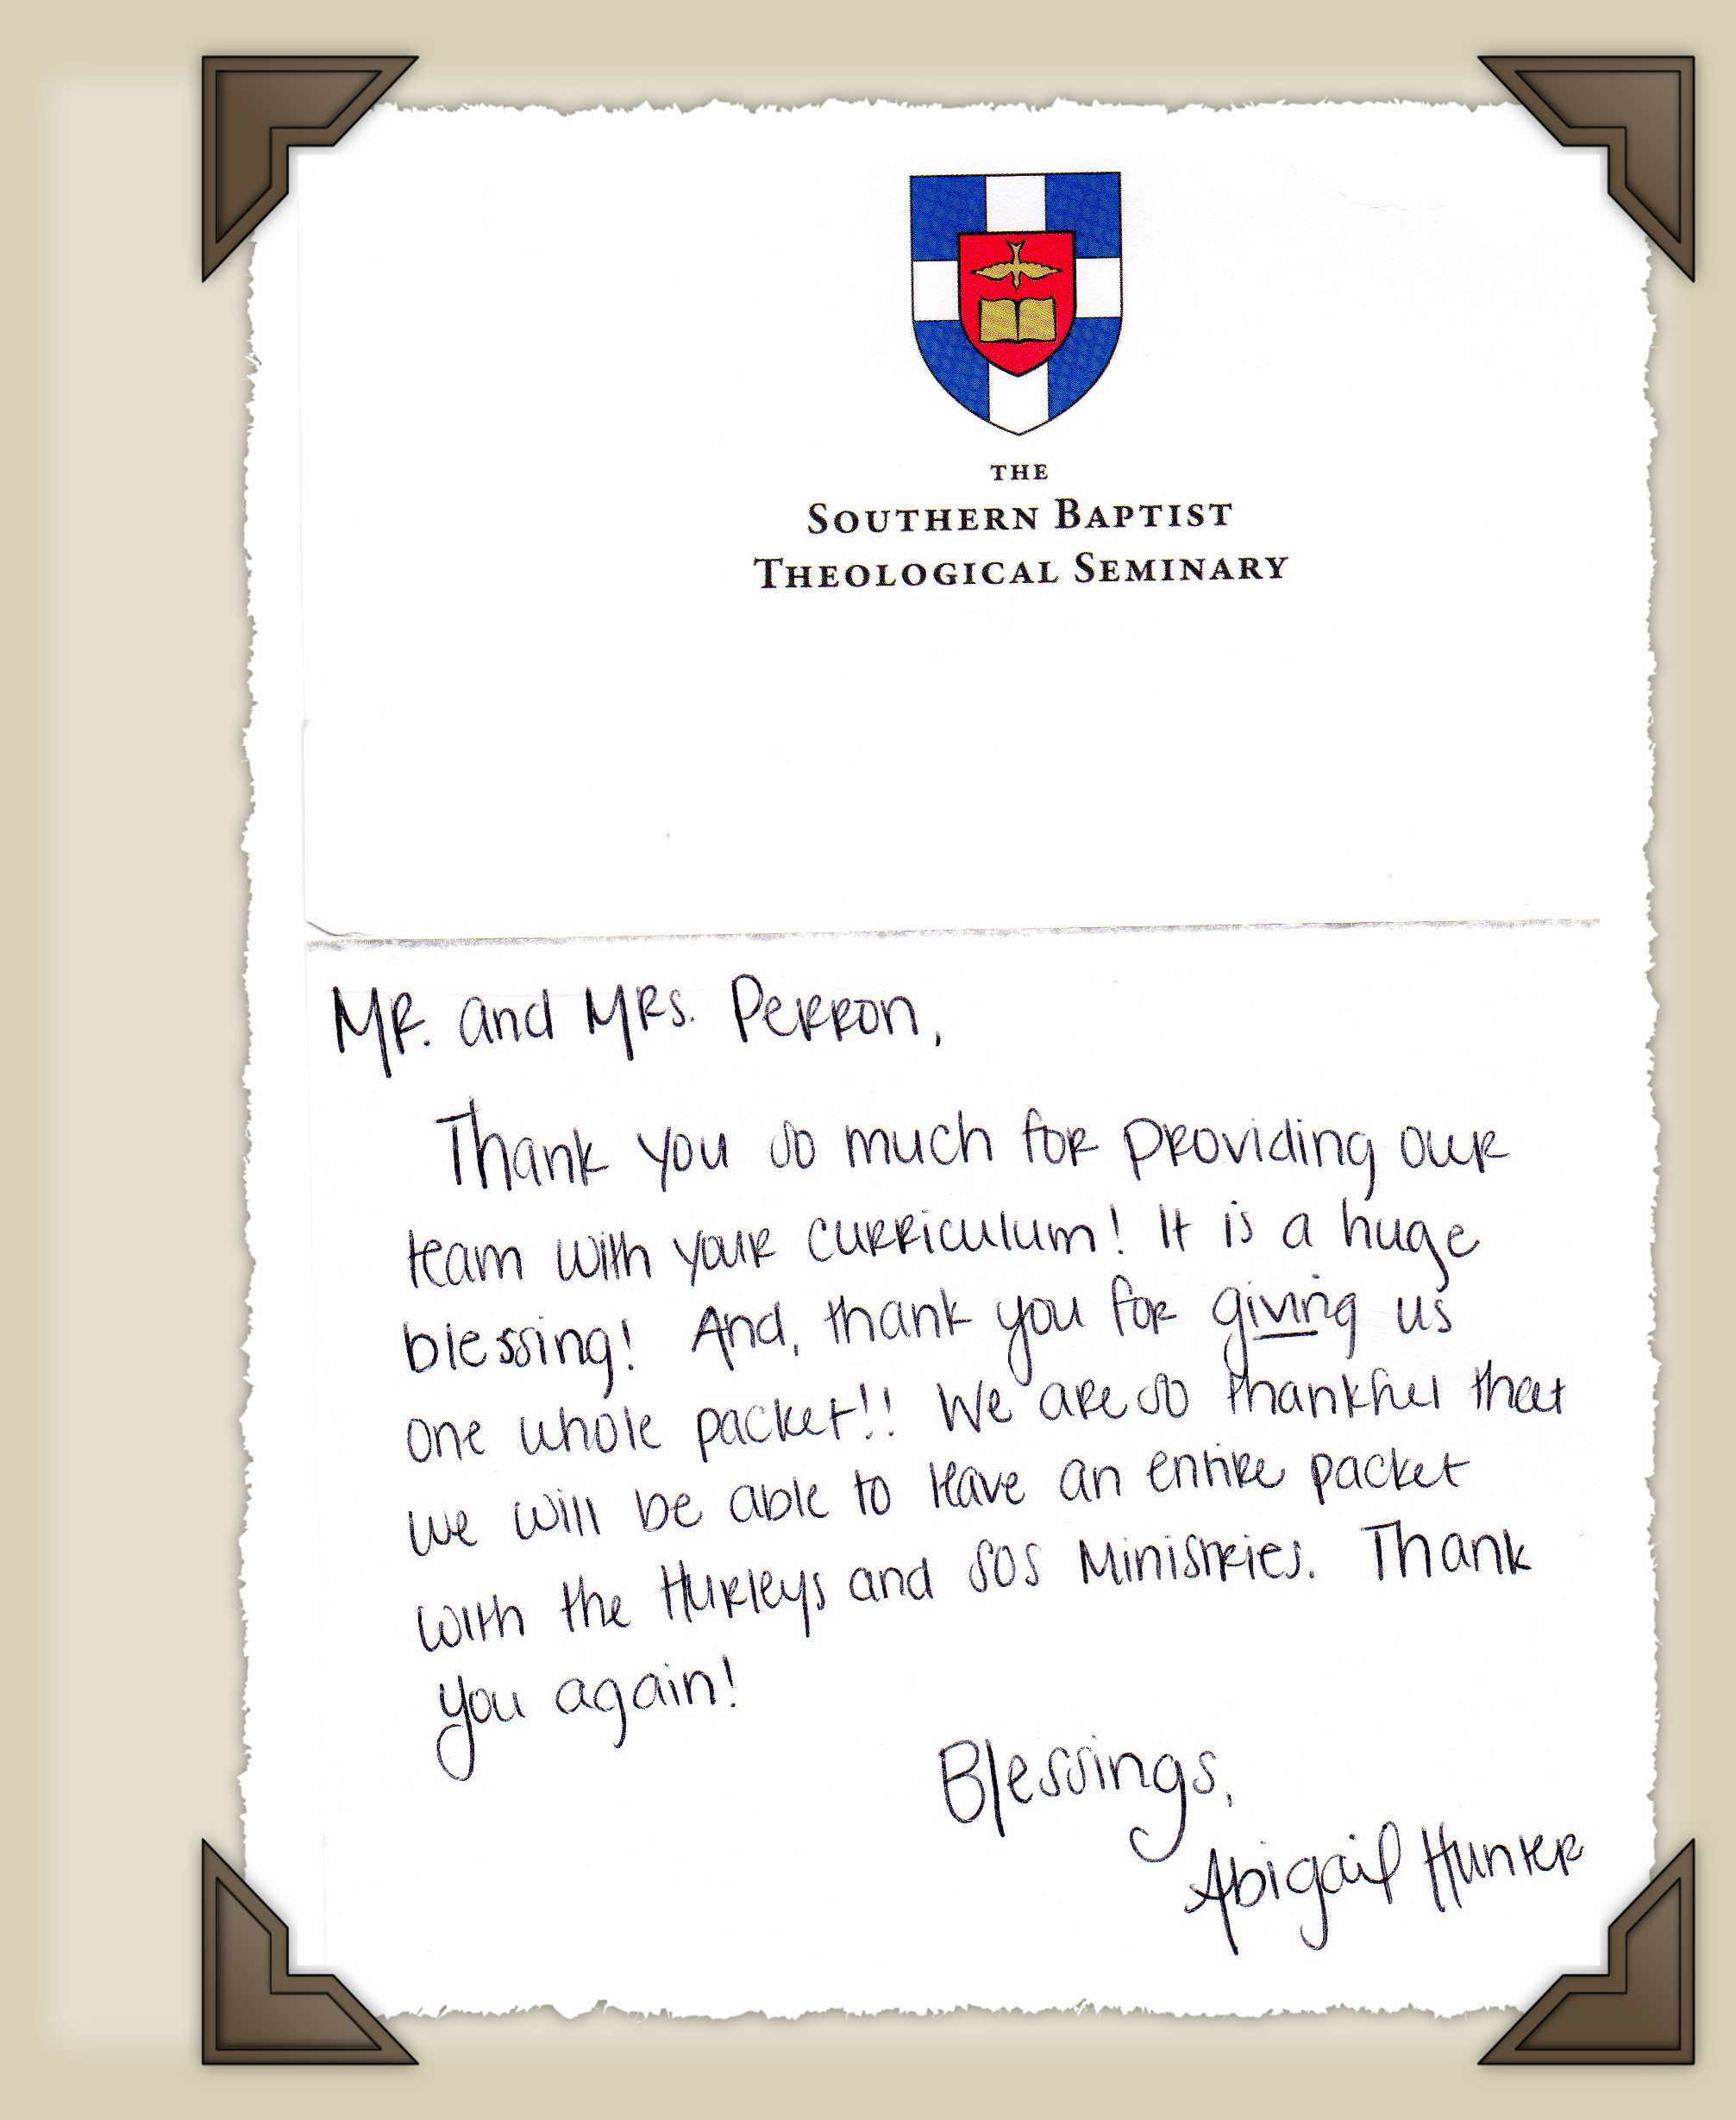 THE
SOUTHERN BAPTIST
THEOLOGICAL SEMINARY
Mr. and Mrs. Perron,
Thank you so much for providing our
team with your curriculum! It is a huge
blessing! And, thank you for giving us
one whole packet!! We are so thankful that
we will be able to leave an entire packet
with the Hurleys and SOS Ministries. Thank
you again!
Blessings,
Abigail Hunter